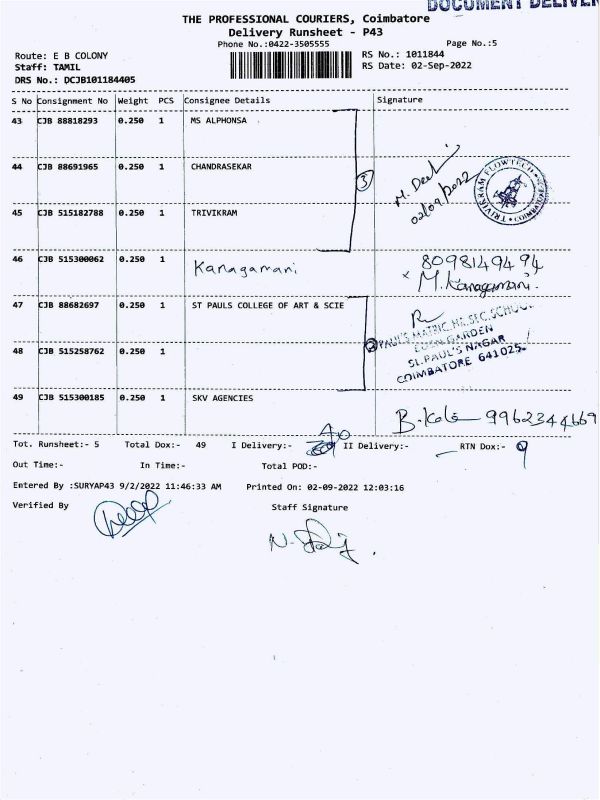 DOCUMENT DELIVER
THE PROFESSIONAL COURIERS, Coimbatore
Delivery Runsheet - P43
Phone No.:0422-3505555
Page No.:5
Route: E B COLONY
RS No.: 1011844
Staff: TAMIL
RS Date: 02-Sep-2022
DRS No.: DCJB101184405
S No Consignment No Weight PCS Consignee Details Signature
43 CJB 88818293 0.250 1 MS ALPHONSA
44 CJB 88691965 0.250 1 CHANDRASEKAR
3
02/09/2022
TRIVIKRAM FLOWTECH
45 CJB 515182788 0.250 1 TRIVIKRAM
46 CJB 515300062 0.250 1 Kanagamani
8098149494
x M. Kanagamani.
47 CJB 88682697 0.250 1 ST PAULS COLLEGE OF ART & SCIE
2
PAUL'S MATRIC.HR.SEC.SCHOOL
EDEN GARDEN
ST.PAUL'S NAGAR
COIMBATORE 641025.
48 CJB 515258762 0.250 1
49 CJB 515300185 0.250 1 SKV AGENCIES
9962344669
Tot. Runsheet:- 5 Total Dox:- 49 I Delivery:- 40 II Delivery:- RTN Dox:- 9
Out Time:- In Time:- Total POD:-
Entered By :SURYAP43 9/2/2022 11:46:33 AM Printed On: 02-09-2022 12:03:16
Verified By Staff Signature